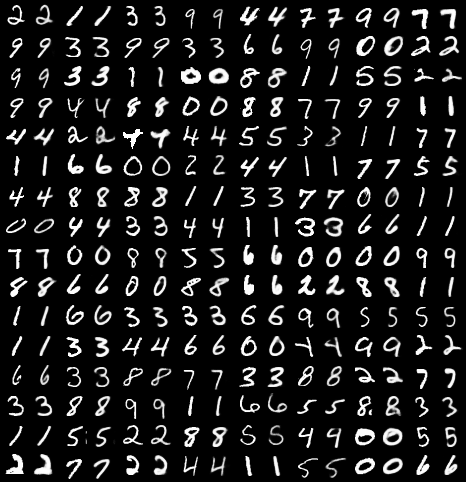 2 2 1 1 3 3 9 9 4 4 7 7 9 9 7 7
9 9 3 3 9 9 3 3 6 6 9 9 0 0 2 2
9 9 3 3 1 1 0 0 8 8 1 1 5 5 2 2
9 9 4 4 8 8 0 0 8 8 7 7 9 9 1 1
4 4 2 2 9 9 4 4 5 5 3 3 1 1 7 7
1 1 6 6 0 0 2 2 4 4 1 1 7 7 5 5
4 4 8 8 8 8 1 1 3 3 7 7 0 0 1 1
0 0 4 4 3 3 4 4 1 1 3 3 6 6 1 1
7 7 0 0 8 8 5 5 6 6 0 0 0 0 9 9
8 8 6 6 0 0 8 8 6 6 2 2 8 8 1 1
1 1 6 6 3 3 3 3 6 6 9 9 5 5 5 5
1 1 3 3 4 4 6 6 0 0 4 4 9 9 2 2
6 6 3 3 8 8 7 7 3 3 8 8 2 2 7 7
3 3 8 8 9 9 1 1 6 6 5 5 8 8 3 3
1 1 5 5 2 2 8 8 5 5 4 4 0 0 5 5
2 2 7 7 2 2 4 4 1 1 5 5 0 0 6 6